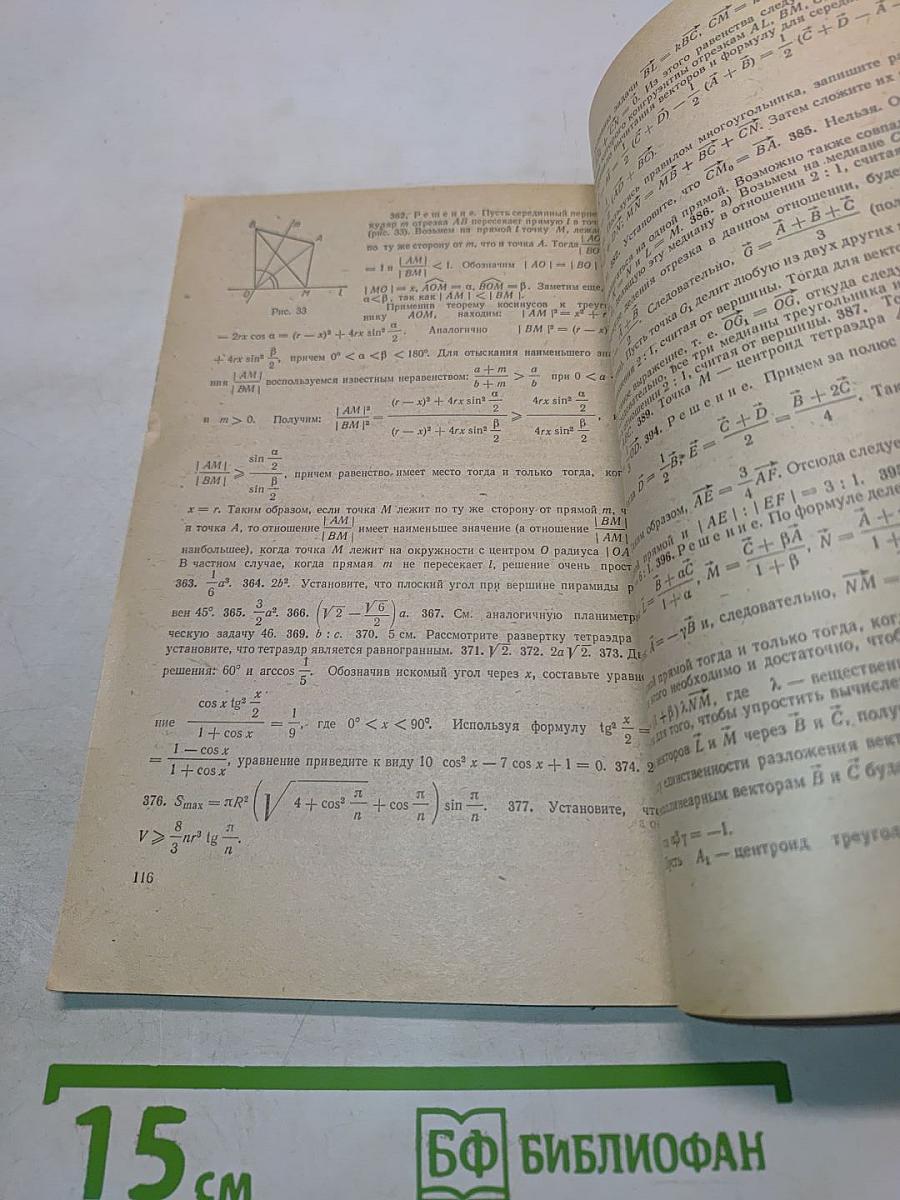 362. Решение. Пусть серединный перпе
куляр m отрезка AB пересекает прямую l в точ
(рис. 33). Возьмем на прямой l точку M, лежа
по ту же сторону от m, что и точка A. Тогда |AO
|BO
= 1 и |AM| / |BM| < 1. Обозначим |AO| = |BO|
|MO| = x, AOM = α, BOM = β. Заметим еще,
α<β, так как |AM| < |BM|.
Применяя теорему косинусов к треуг
нику AOM, находим: |AM|² = x² +
B m A O M l
Рис. 33
— 2rx cos α = (r — x)² + 4rx sin² α/2. Аналогично |BM|² = (r — x)
+ 4rx sin² β/2, причем 0° < α < β < 180°. Для отыскания наименьшего зн
ния |AM| / |BM| воспользуемся известным неравенством: (a + m) / (b + m) > a / b при 0 < a
и m > 0. Получим: |AM|² / |BM|² = ((r — x)² + 4rx sin² α/2) / ((r — x)² + 4rx sin² β/2) ⩾ (4rx sin² α/2) / (4rx sin² β/2),
|AM| / |BM| ⩾ (sin α/2) / (sin β/2), причем равенство имеет место тогда и только тогда, ког
x = r. Таким образом, если точка M лежит по ту же сторону от прямой m, ч
и точка A, то отношение |AM| / |BM| имеет наименьшее значение (а отношение |BM| / |AM|
наибольшее), когда точка M лежит на окружности с центром O радиуса |OA
В частном случае, когда прямая m не пересекает l, решение очень прост
363. 1/6 a³. 364. 2b². Установите, что плоский угол при вершине пирамиды р
вен 45°. 365. 3/2 a². 366. (√2 — √6/2) a. 367. См. аналогичную планиметри
ческую задачу 46. 369. b : c. 370. 5 см. Рассмотрите развертку тетраэдра
установите, что тетраэдр является равногранным. 371. √2. 372. 2a√2. 373. Дв
решения: 60° и arccos 1/5. Обозначив искомый угол через x, составьте уравне
ние (cos x tg² x/2) / (1 + cos x) = 1/9, где 0° < x < 90°. Используя формулу tg² x/2 =
= (1 — cos x) / (1 + cos x), уравнение приведите к виду 10 cos² x — 7 cos x + 1 = 0. 374. 2
376. Smax = πR² (√(4 + cos² π/n) + cos π/n) sin π/n. 377. Установите, что
V ⩾ 8/3 nr³ tg π/n.
116
задачи BL = kBC, CM =
CN = 0. Из этого равенства следу
конгруэнтны отрезкам AL, BM, C
вычитания векторов и формулу для середи
1/2 (C + D) — 1/2 (A + B) = 1/2 (C + D — A —
(AD + BC).
правилом многоугольника, запишите ра
MN = MB + BC + CN. Затем сложите их
Установите, что CM₀ = BA. 385. Нельзя. О
на одной прямой. Возможно также совпад
L = M. 386. а) Возьмем на медиане C
эту медиану в отношении 2 : 1, считая
деления отрезка в данном отношении, буде
Следовательно, G = (A + B + C) / 3 (пол
Пусть точка G₁ делит любую из двух других
2 : 1, считая от вершины. Тогда для векто
выражение, т. е. OG₁ = OG, откуда следу
все три медианы треугольника
2 : 1, считая от вершины. 387. То
389. Точка M — центроид тетраэдра
394. Решение. Примем за полюс
D = 1/2 B, E = (C + D) / 2 = (B + 2C) / 4. Так
образом, AE = 3/4 AF. Отсюда следуе
прямой и |AE| : |EF| = 3 : 1. 395
396. Решение. По формуле деле
L = (B + αC) / (1 + α), M = (C + βA) / (1 + β), N = (A +
A = —γB и, следовательно, NM =
прямой тогда и только тогда, когд
необходимо и достаточно, чтоб
β)λNM, где λ — веществен
для того, чтобы упростить вычисле
векторов L и M через B и C, полу
единственности разложения вект
неарным векторам B и C буд
αβγ = —1.
Пусть A₁ — центроид треугол
15 см
БФ БИБЛИОФАН